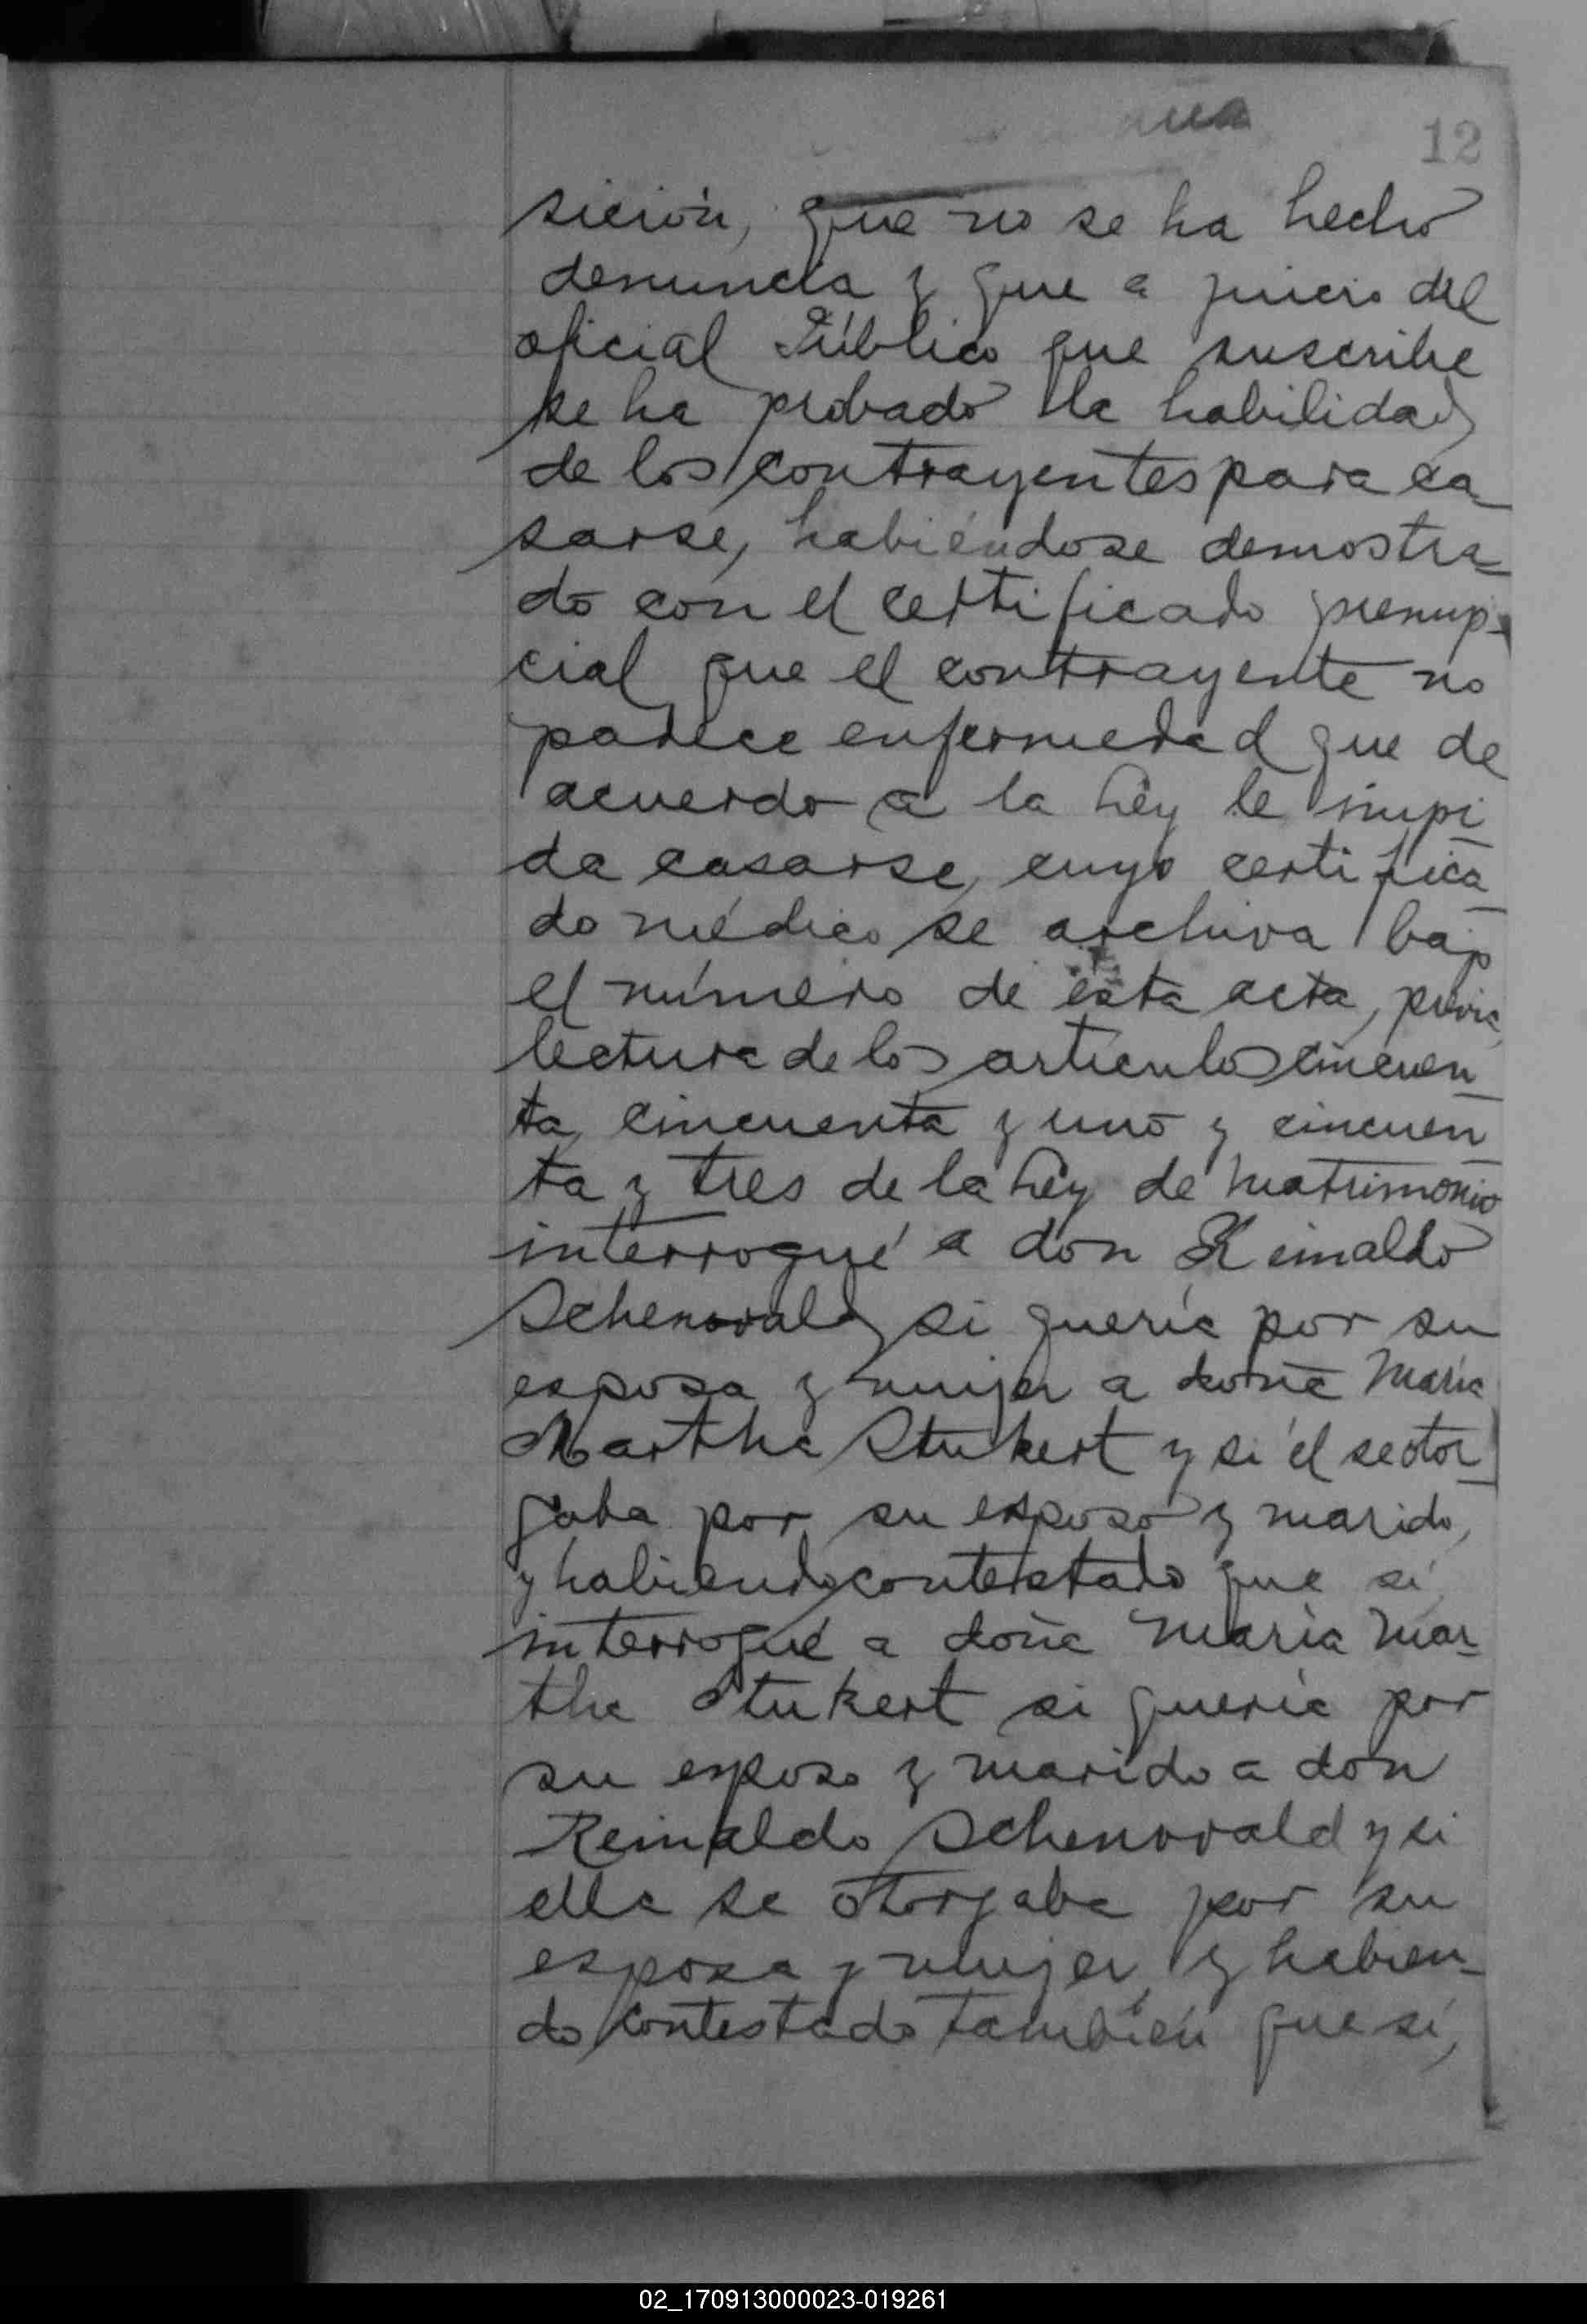 12
sición, que no se ha hecho
denuncia y que a juicio del
oficial Público que suscribe
se ha probado la habilidad
de los contrayentes para ca
sarse, habiéndose demostra
do con el certificado prenup-
cial que el contrayente no
padece enfermedad que de
acuerdo a la Ley le impi
da casarse, cuyo certifica
do médico se archiva bajo
el número de esta acta, previa
lectura de los artículos cincuen
ta, cincuenta y uno y cincuen
ta y tres de la Ley de Matrimonio
interrogué a don Reinaldo
Schenovald si quería por su
esposa y mujer a doña María
Martha Stukert y si él se otor
gaba por su esposo y marido,
y habiendo contestado que sí
interrogué a doña María Mar
tha Stukert si quería por
su esposo y marido a don
Reinaldo Schenovald y si
ella se otorgaba por su
esposa y mujer, y habien-
do contestado también que sí,
02_170913000023-019261